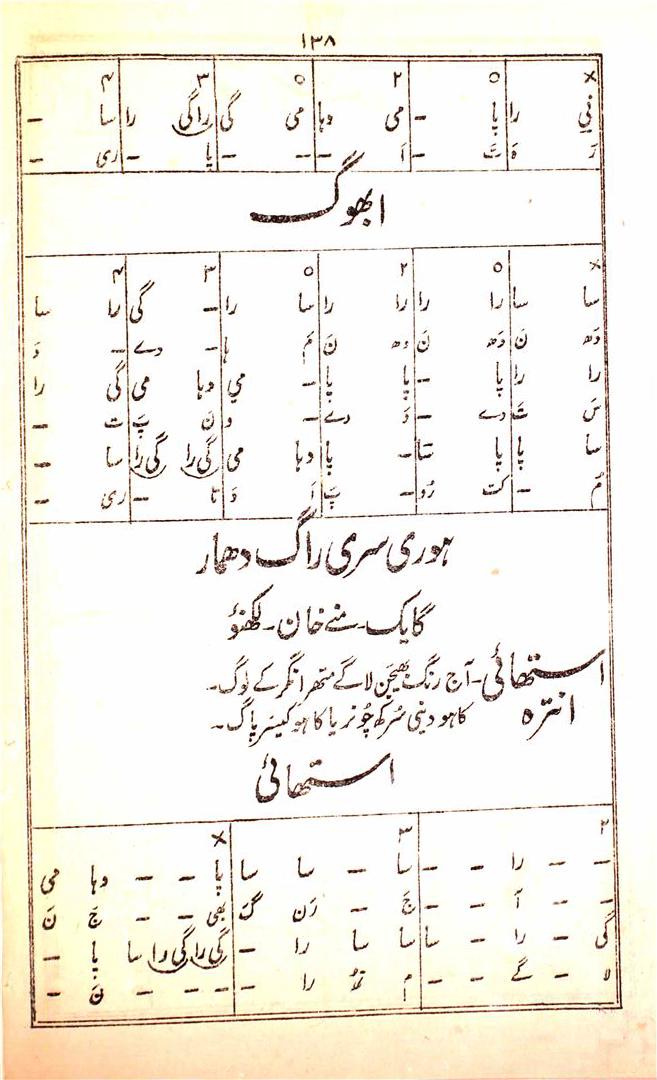 ۱۳۸
× | ० | ۲ | ० | ۳ | ۴
نی را | پا - | می دہا | می گی | راگی را | سا -
رَ ہَ | تَ - | اَ - | - - | یا - | ری -
ابھوگ
× | ० | ۲ | ० | ۳ | ۴
سا سا | را را | را را | سا را | - گی | را سا
دَھ نَ | دَھ نَ | دھ نَ | مَ ہا | - دے | - دَ
را را | پا - | پا پا | - می | دہا می | گی را
سَ تَ | دے - | دَ دے | - و | نَ پَ | ت -
سا پا | پا سَا | - پا | دہا می | گی را گی را | سا -
مُ - | کت رُو | - پَ | اَ وَ | تا - | ری -
ہوری سری راگ دھمار
گایک۔ منے خان۔ لکھنؤ
استھائی۔ آج رنگ بھیجن لاگے متھرا نگر کے لوگ۔
انترہ کاہو دینی سُرکھ چُونریا کاہو کیسر پاگ۔
استھائی
۲ | ۳ | ×
- - را - - | سا - سا سا | پا - - دہا می
- - آ - - | جَ - رَن گَ | بھی - - جَ نَ
گی - را - سا | سا سا را - | گی را گی را سا پا -
ہ - گے - - | م تھُ را - | - - - نَ -